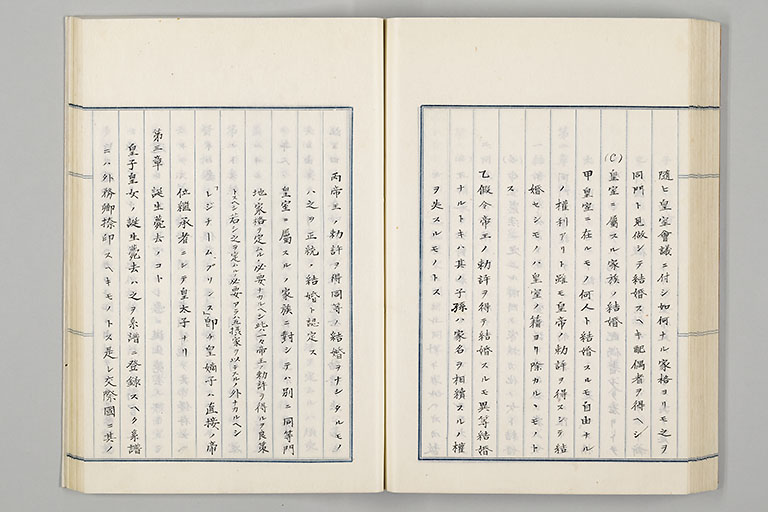 隨ヒ皇室會議ニ付シ如何ナル家格ヨリモ之ヲ
同門ト見做シテ結婚スヘキ配偶者ヲ得ヘシ
(C) 皇室ニ屬スル家族ノ結婚
甲皇室ニ在ルモノ何人ト結婚スルモ自由ナル
ノ權利アリト雖モ皇帝ノ勅許ヲ得スシテ結
婚セシモノハ皇室ノ籍ヨリ除カルヽモノト
ス
乙假令帝王ノ勅許ヲ得テ結婚スルモ異等結婚
ナルトキハ其ノ子孫ハ家名ヲ相續スルノ權
ヲ失スルモノトス
両帝王ノ勅許ヲ得同等ノ結婚ヲナシタルモノ
ハ之ヲ正統ノ結婚ト認定ス
皇室ニ屬スルノ家族ニ對シテハ別ニ同等門
地ノ家格ヲ定ムルノ必要ナカルヘシ此ハ一々帝王ノ勅許ヲ得ルヲ良策
トスヘシ若シ之ヲ定ムルノ必要アラハ五摂家ヲ以テスルノ外ナカルヘシ
「レジチーム、プリンス」即チ皇嫡子ハ直接ノ帝
位繼承者ニシテ皇太子ナリ
第三章 誕生薨去ノコト
皇子皇女ノ誕生薨去ハ之ヲ系譜ニ登録スヘク系譜
ニハ外務卿捺印スヘキモノトス是レ交際國ニ其ノ